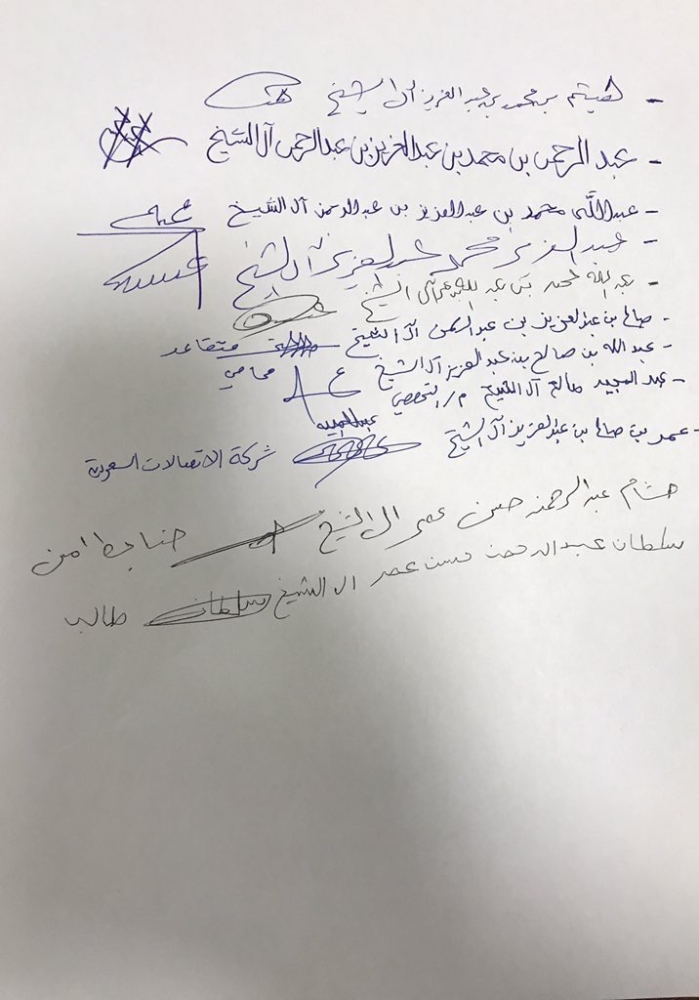 - هيثم بن محمد بن عبد العزيز آل الشيخ
- عبد الرحمن بن محمد بن عبد العزيز بن عبد الرحمن آل الشيخ
- عبدالله محمد بن عبد العزيز بن عبد الرحمن آل الشيخ
- عبد العزيز محمد عبد العزيز آل الشيخ
- عبد الله محمد بن عبد آل الشيخ
- صالح بن عبد العزيز بن عبد الرحمن آل الشيخ متقاعد
- عبد الله بن صالح بن عبد العزيز آل الشيخ محامي
- عبد المجيد صالح آل الشيخ م/ التخصصي عبدالمجيد
- عمر بن صالح بن عبد العزيز آل الشيخ شركة الاتصالات السعودية
هشام عبد الرحمن حسن عمر ال الشيخ ضابط امن
سلطان عبد الرحمن حسن عمر ال الشيخ سلطان طالب